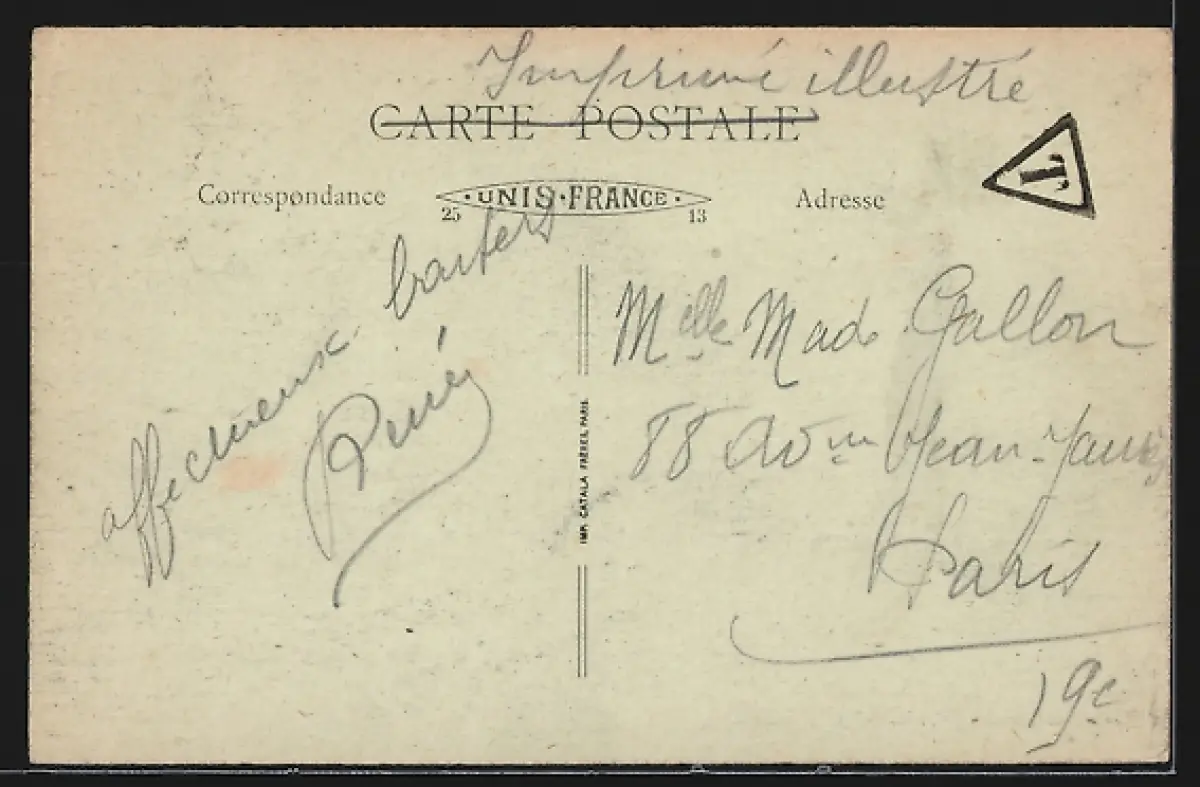 Imprimé illustré
CARTE POSTALE
T
Correspondance
·UNIS·FRANCE·
25
13
Adresse
affectueux baisers
René
IMP. CATALA FRERES, PARIS
Melle Mad. Gallon
88 Avue Jean-Jaurès
Paris
19e